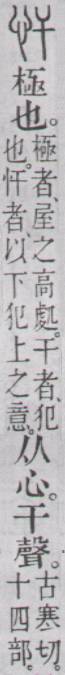 忓極也。極者、屋之高處。干者、犯也。忓者、以下犯上之意。从心。干聲。古寒切。十四部。